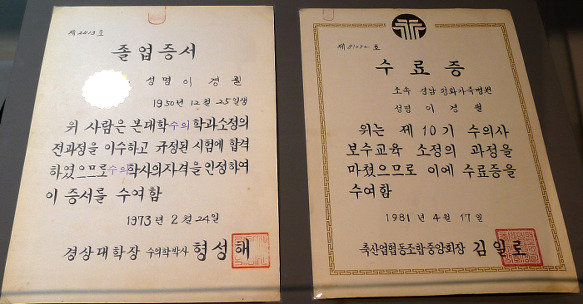 제 2013 호
졸업증서
성명 이경필
1950년 12월 25일생
위 사람은 본대학수의학과소정의
전과정을 이수하고 규정된 시험에 합격
하였으므로수의학사의자격을인정하여
이 증서를 수여함
1973년 2월 24일
경상대학장 수의학박사 형성해
제 호
수료증
소속 경남 가축병원
성명 이경필
위는 제10기 수의사
보수교육 소정의 과정을
마쳤으므로 이에 수료증을
수여함
1981년 4월 17일
축산업협동조합중앙회장 김일로